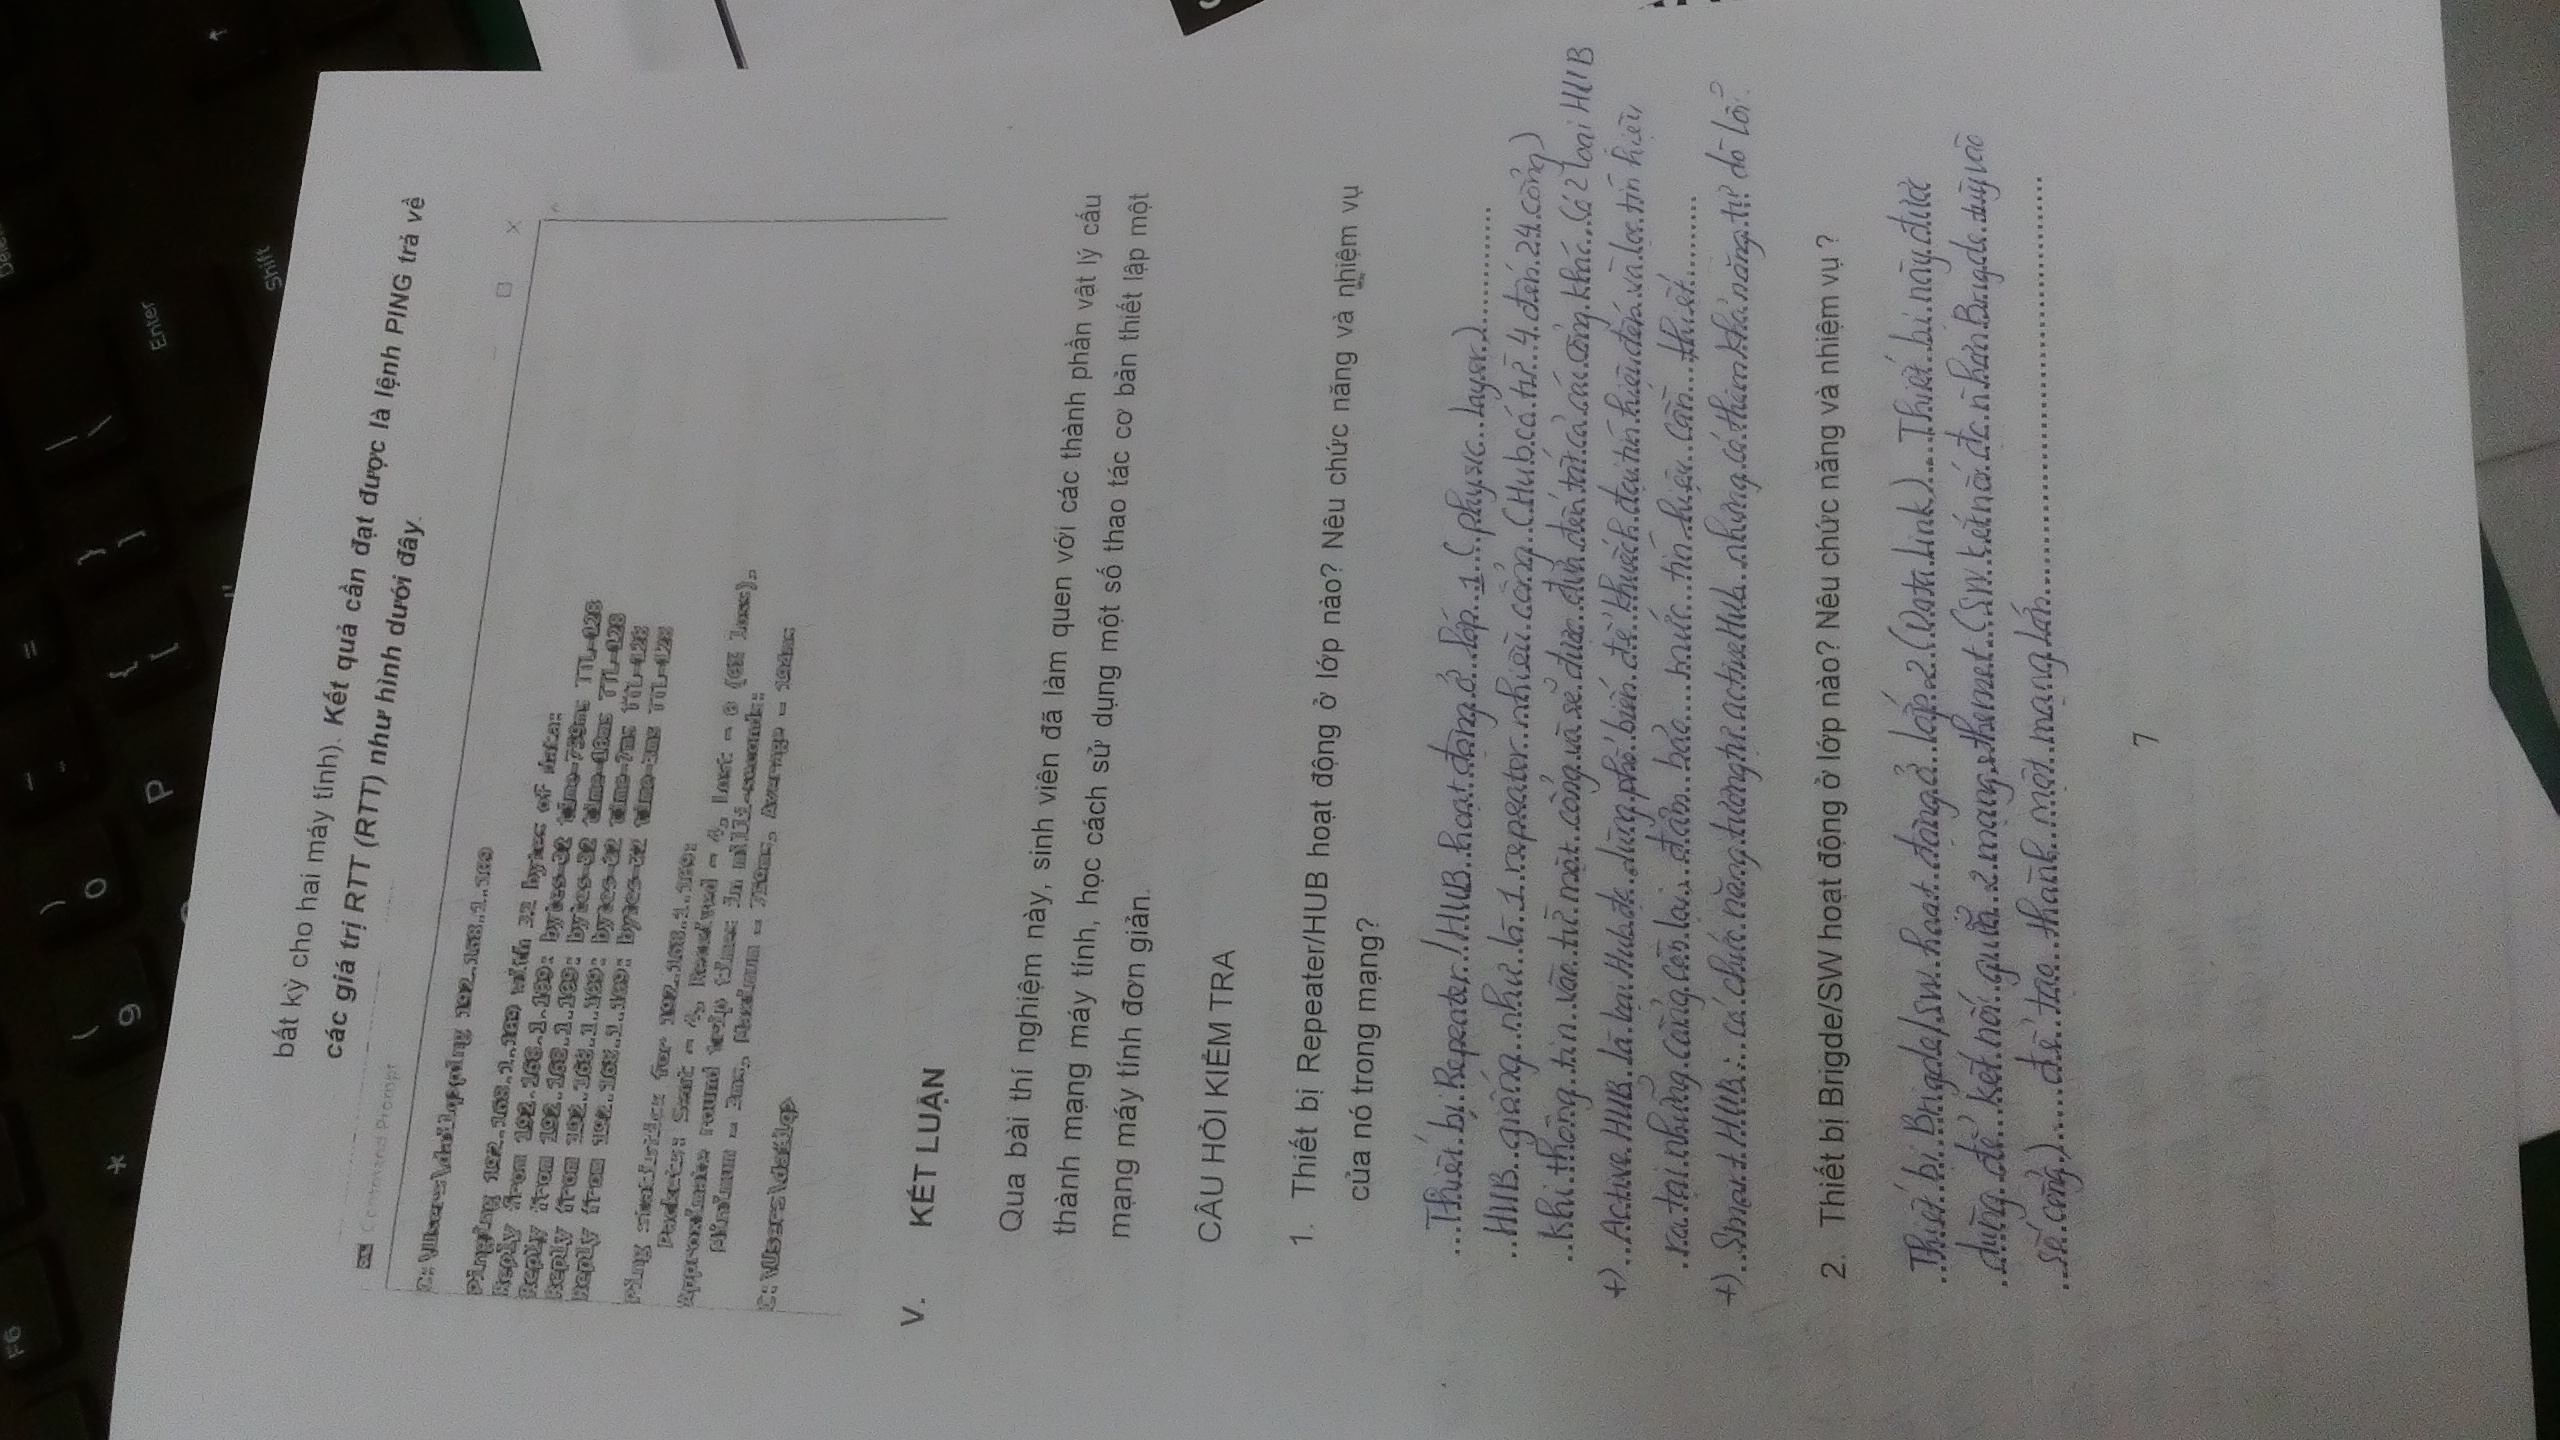 F6
* ( 9 ) 0 _ - =
P { [ } ] | \
Enter
Shift
bất kỳ cho hai máy tính). Kết quả cần đạt được là lệnh PING trả về
các giá trị RTT (RTT) như hình dưới đây.
Command Prompt
C:\Users\dailq>ping 192.168.1.189
Pinging 192.168.1.189 with 32 bytes of data:
Reply from 192.168.1.189: bytes=32 time=759ms TTL=128
Reply from 192.168.1.189: bytes=32 time=10ms TTL=128
Reply from 192.168.1.189: bytes=32 time=7ms TTL=128
Reply from 192.168.1.189: bytes=32 time=3ms TTL=128
Ping statistics for 192.168.1.189:
Packets: Sent = 4, Received = 4, Lost = 0 (0% loss),
Approximate round trip times in milli-seconds:
Minimum = 3ms, Maximum = 759ms, Average = 194ms
C:\Users\dailq>
V. KẾT LUẬN
Qua bài thí nghiệm này, sinh viên đã làm quen với các thành phần vật lý cấu
thành mạng máy tính, học cách sử dụng một số thao tác cơ bản thiết lập một
mạng máy tính đơn giản.
CÂU HỎI KIỂM TRA
1. Thiết bị Repeater/HUB hoạt động ở lớp nào? Nêu chức năng và nhiệm vụ
của nó trong mạng?
Thiết bị Repeater/HUB hoạt động ở lớp 1 (physic layer)
HUB giống như là 1 repeater nhiều cổng (Hub có từ 4 đến 24 cổng)
khi thông tin vào từ một cổng và sẽ được đưa đến tất cả các cổng khác. Có 2 loại HUB
+) Active HUB là loại Hub đc dùng phổ biến để khuếch đại tín hiệu đến và lọc tín hiệu
ra tại những cổng còn lại, đảm bảo mức tín hiệu cần thiết
+) Smart HUB: có chức năng tương tự active Hub nhưng có thêm khả năng tự dò lỗi
2. Thiết bị Brigde/SW hoạt động ở lớp nào? Nêu chức năng và nhiệm vụ ?
Thiết bị Brigde/SW hoạt động ở lớp 2 (Data Link). Thiết bị này được
dùng để kết nối giữa 2 mạng ethernet (SW kết nối đc n hơn Brigde tùy vào
số cổng) để tạo thành một mạng lớn
7